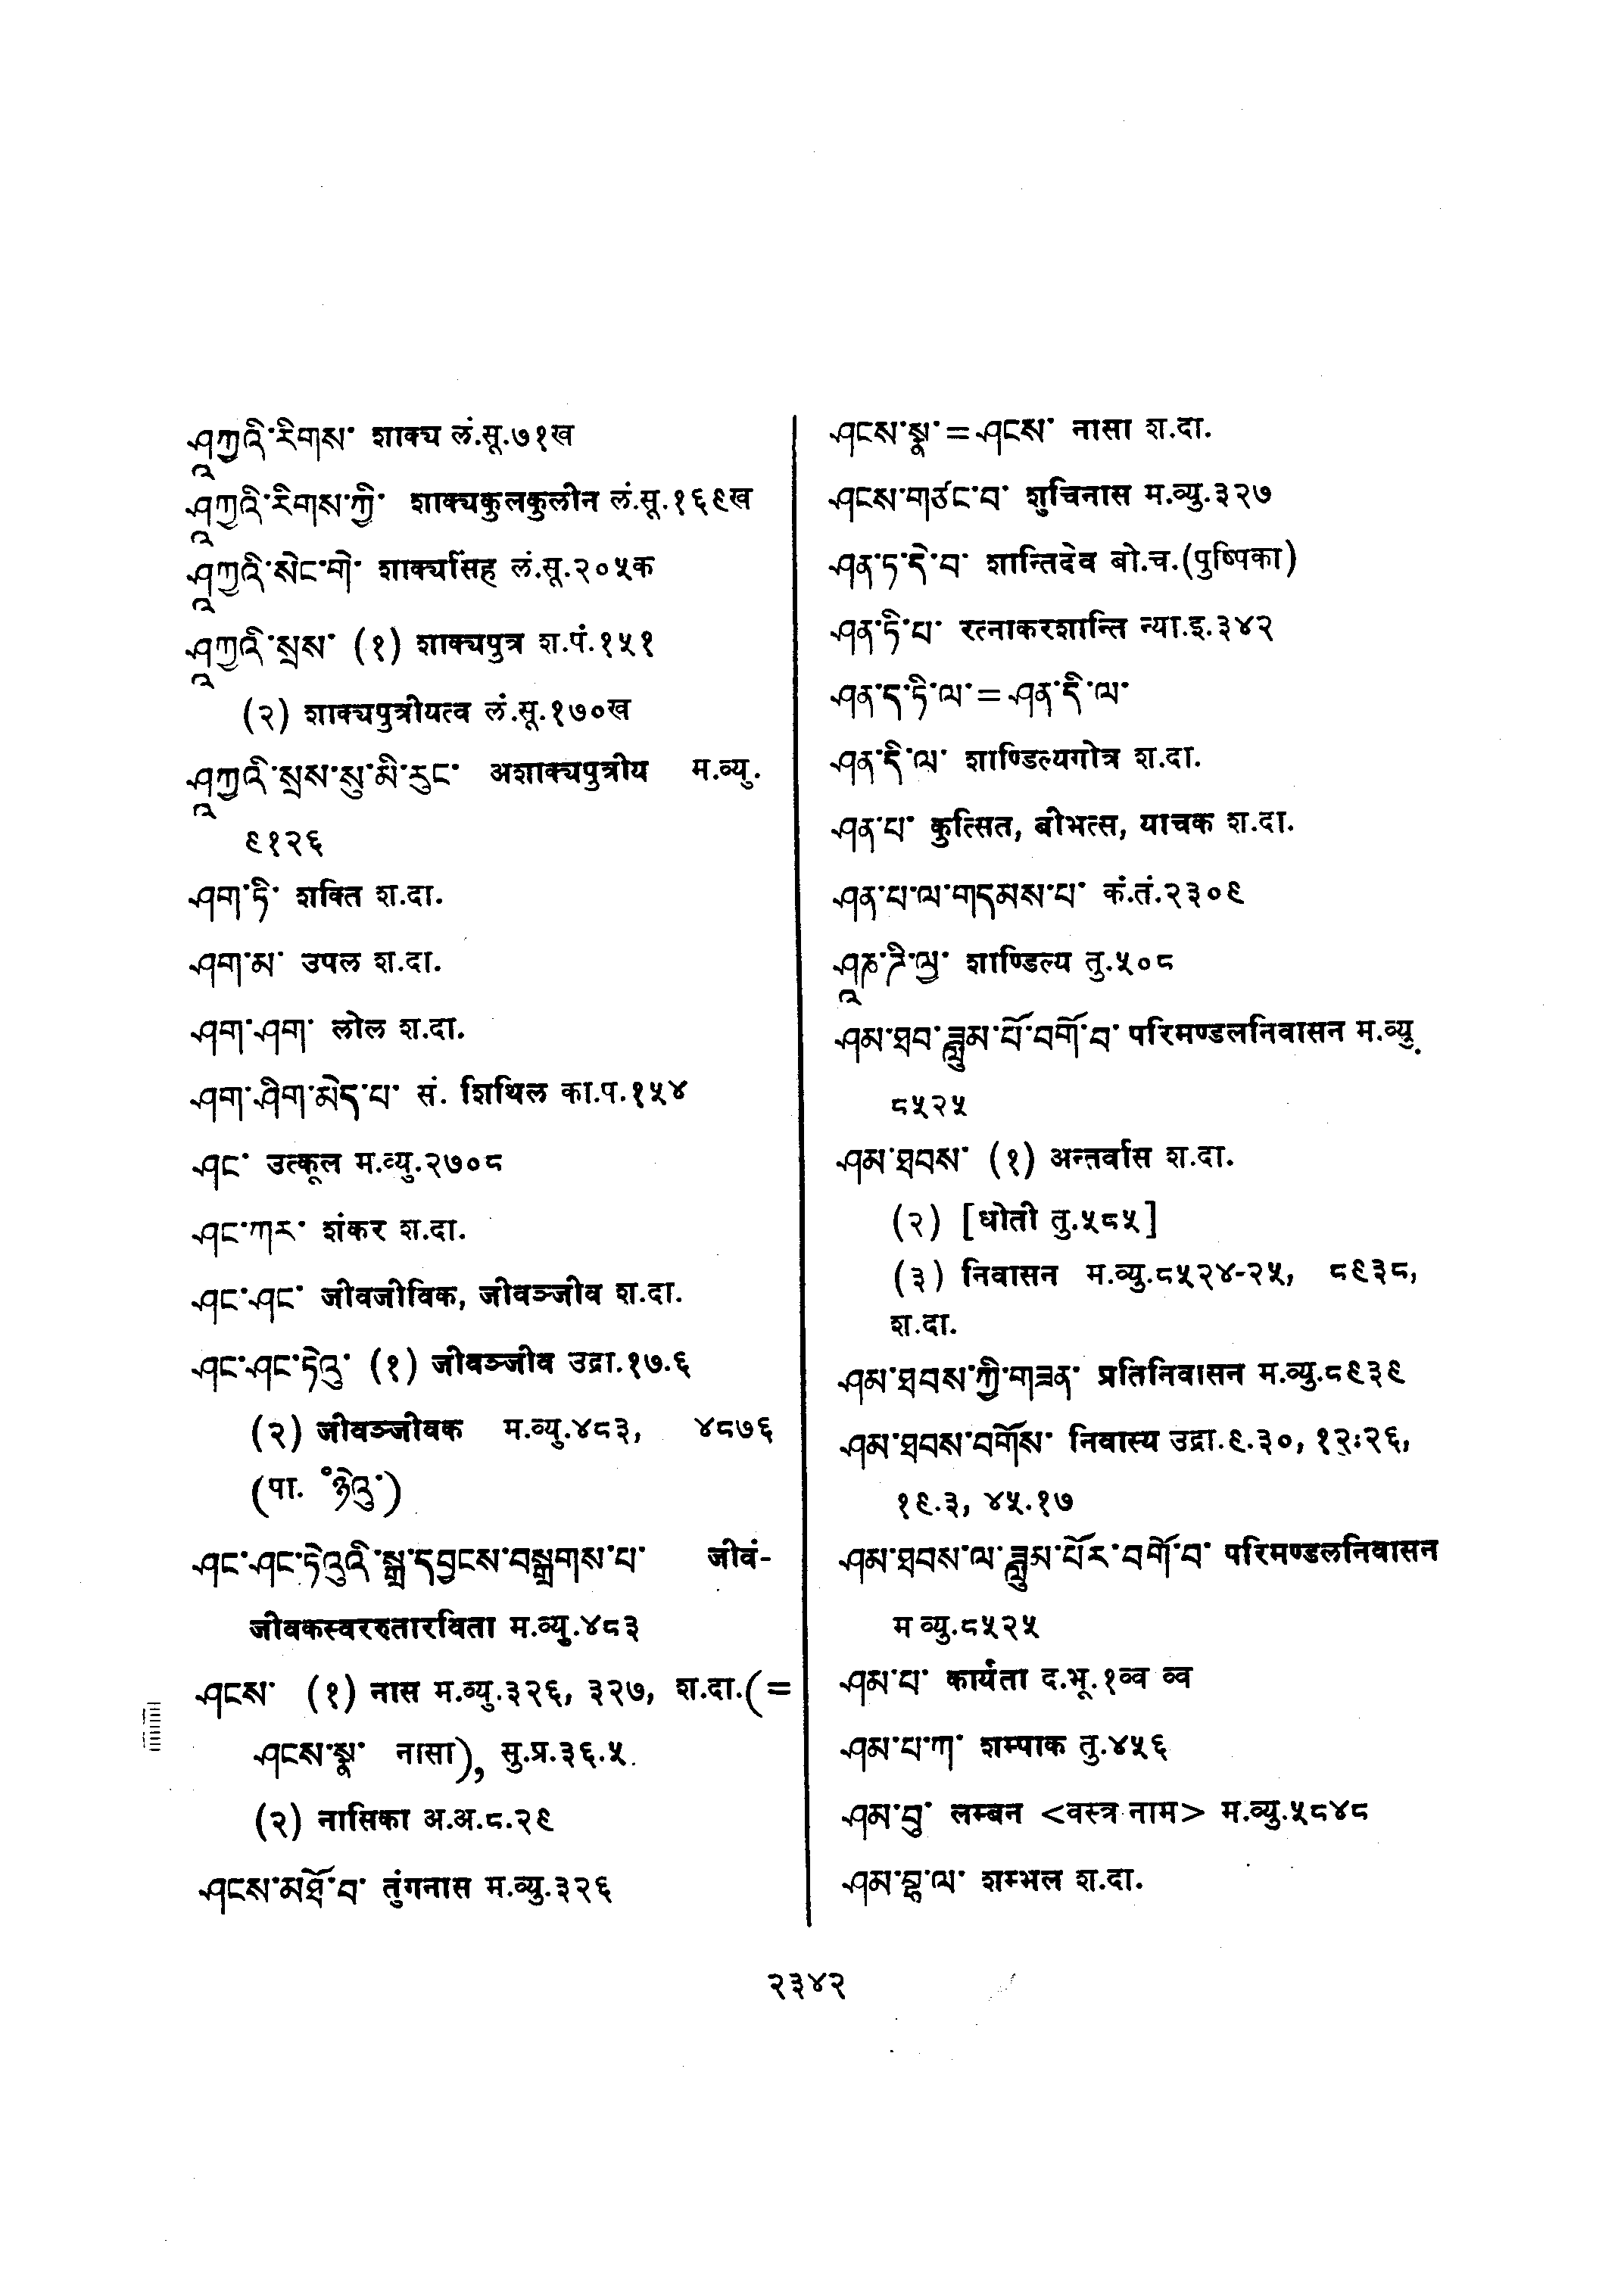 ཤཱཀྱའི་རིགས་ शाक्य लं.सू.७१ख
ཤཱཀྱའི་རིགས་ཀྱི་ शाक्यकुलकुलीन लं.सू.१६९ख
ཤཱཀྱའི་སེང་གེ་ शाक्यसिंह लं.सू.२०५क
ཤཱཀྱའི་སྲས་ (१) शाक्यपुत्र श.पं.१५१
(२) शाक्यपुत्रीयत्व लं.सू.१७०ख
ཤཱཀྱའི་སྲས་སུ་མི་རུང་ अशाक्यपुत्रीय म.व्यु.
९१२६
ཤག་ཏི་ शक्ति श.दा.
ཤག་མ་ उपल श.दा.
ཤག་ཤག་ लोल श.दा.
ཤག་ཤིག་མེད་པ་ सं. शिथिल का.प.१५४
ཤང་ उत्कूल म.व्यु.२७०८
ཤང་ཀར་ शंकर श.दा.
ཤང་ཤང་ जीवजीविक, जीवञ्जीव श.दा.
ཤང་ཤང་ཏེའུ་ (१) जीवञ्जीव उद्रा.१७.६
(२) जीवञ्जीवक म.व्यु.४८३, ४८७६
(पा. ॰ཉེའུ་)
ཤང་ཤང་ཏེའུའི་སྒྲ་དབྱངས་བསྒྲགས་པ་ जीवं-
जीवकस्वररुतारविता म.व्यु.४८३
ཤངས་ (१) नास म.व्यु.३२६, ३२७, श.दा.(=
ཤངས་སྣ་ नासा), सु.प्र.३६.५.
(२) नासिका अ.अ.८.२९
ཤངས་མཐོ་བ་ तुंगनास म.व्यु.३२६
ཤངས་སྣ་=ཤངས་ नासा श.दा.
ཤངས་གཙང་བ་ शुचिनास म.व्यु.३२७
ཤན་ཏ་དེ་བ་ शान्तिदेव बो.च.(पुष्पिका)
ཤན་ཏི་པ་ रत्नाकरशान्ति न्या.इ.३४२
ཤན་ད་ཏི་ལ་=ཤན་དི་ལ་
ཤན་དི་ལ་ शाण्डिल्यगोत्र श.दा.
ཤན་པ་ कुत्सित, बीभत्स, याचक श.दा.
ཤན་པ་ལ་གདམས་པ་ कं.तं.२३०९
ཤཱཎ་ཌི་ལྱ་ शाण्डिल्य तु.५०८
ཤམ་ཐབ་ཟླུམ་པོ་བགོ་བ་ परिमण्डलनिवासन म.व्यु.
८५२५
ཤམ་ཐབས་ (१) अन्तर्वास श.दा.
(२) [धोती तु.५८५]
(३) निवासन म.व्यु.८५२४-२५, ८९३८,
श.दा.
ཤམ་ཐབས་ཀྱི་གཟན་ प्रतिनिवासन म.व्यु.८९३९
ཤམ་ཐབས་བགོས་ निवास्य उद्रा.९.३०, १२ः२६,
१९.३, ४५.१७
ཤམ་ཐབས་ལ་ཟླུམ་པོར་བགོ་བ་ परिमण्डलनिवासन
म व्यु.८५२५
ཤམ་པ་ कार्यता द.भू.१व्व व्व
ཤམ་པ་ཀ་ शम्पाक तु.४५६
ཤམ་བུ་ लम्बन <वस्त्र नाम> म.व्यु.५८४८
ཤམ་བྷ་ལ་ शम्भल श.दा.
२३४२